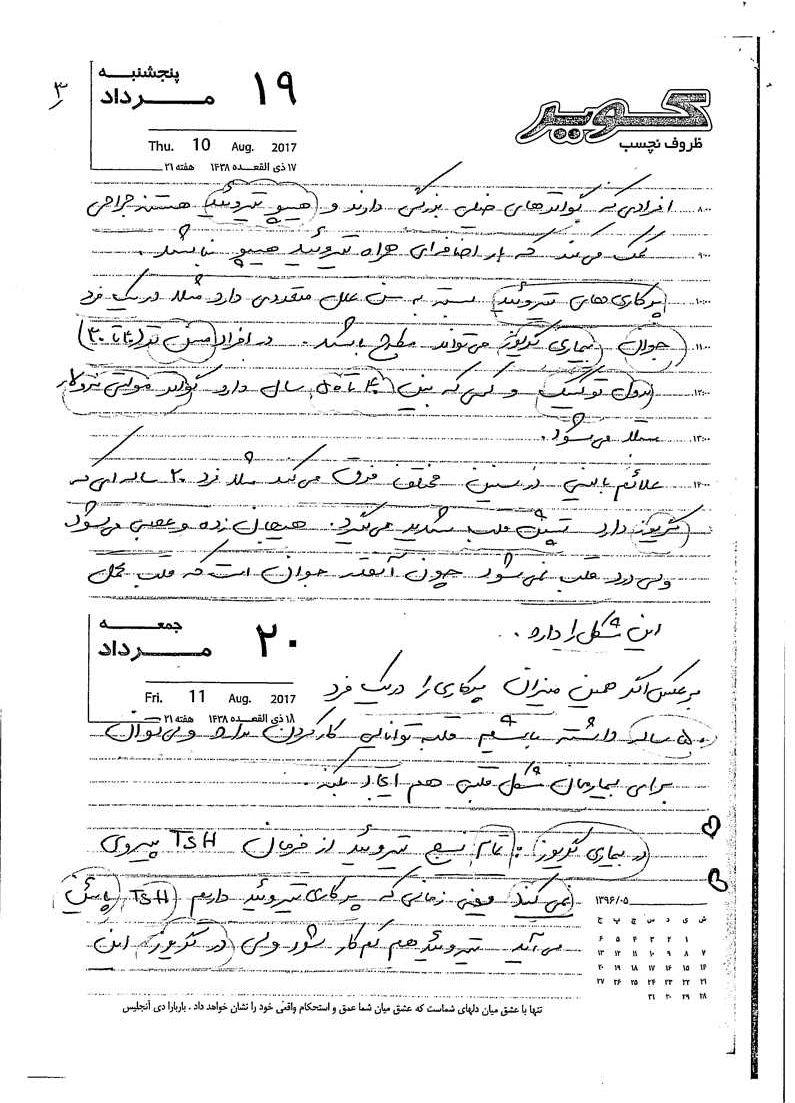 ۳
پنجشنبه
۱۹
مرداد
Thu. 10 Aug. 2017
۱۷ ذی القعده ۱۴۳۸ هفته ۲۱
کویر
ظروف نچسب
۸:۰۰ افرادی که گواترهای خیلی بزرگی دارند و (هیپو تیروئید) هستند جراحی
۹:۰۰ کمک می‌کند که بار اضافه‌ای همراه تیروئید هیپو نباشد.
۱۰:۰۰ پرکاری‌های تیروئید بسته به سن علل متعددی دارد مثلا در یک فرد
۱۱:۰۰ (جوان) (بیماری گریوز) می‌تواند مطرح باشد. در افراد (مسن تر) (۲۰ تا ۳۰)
۱۲:۰۰ (ندول توکسیک) و کسی که بین (۴۰ تا ۵۰) سال دارد گواتر مولتی ندولار
۱۳:۰۰ مبتلا می‌شود.
۱۴:۰۰ علائم بالینی در سنین مختلف فرق می‌کند مثلا فرد ۲۰ ساله ای که
(گریوز) دارد تپش قلب شدید می‌گیرد. هیجان زده و عصبی می‌شود
ولی درد قلب نمی‌شود چون آنقدر جوان است که قلب تحمل
این شکل را دارد.
جمعه
۲۰
مرداد
Fri. 11 Aug. 2017
۱۸ ذی القعده ۱۴۳۸ هفته ۲۱
برعکس اگر همین میزان پرکاری را در یک فرد
۵۰ ساله داشته باشیم قلب توانایی کار کردن ندارد و می‌توان
برای بیمارمان مشکل قلبی هم ایجاد بکند.
(در بیماری گریوز): تمام نسج تیروئید از فرمان TSH پیروی
نمی کند یعنی زمانی که پرکاری تیروئید داریم (TSH) (پائین)
می‌آید تیروئید هم کم کار شود ولی (در گریوز) این
۱۳۹۶/۰۵
ش ی د س چ پ ج
۱ ۲ ۳ ۴ ۵ ۶
۷ ۸ ۹ ۱۰ ۱۱ ۱۲ ۱۳
۱۴ ۱۵ ۱۶ ۱۷ ۱۸ ۱۹ ۲۰
۲۱ ۲۲ ۲۳ ۲۴ ۲۵ ۲۶ ۲۷
۲۸ ۲۹ ۳۰ ۳۱
تنها با عشق میان دلهای شماست که عشق میان شما عمق و استحکام واقعی خود را نشان خواهد داد. باربارا دی آنجلیس